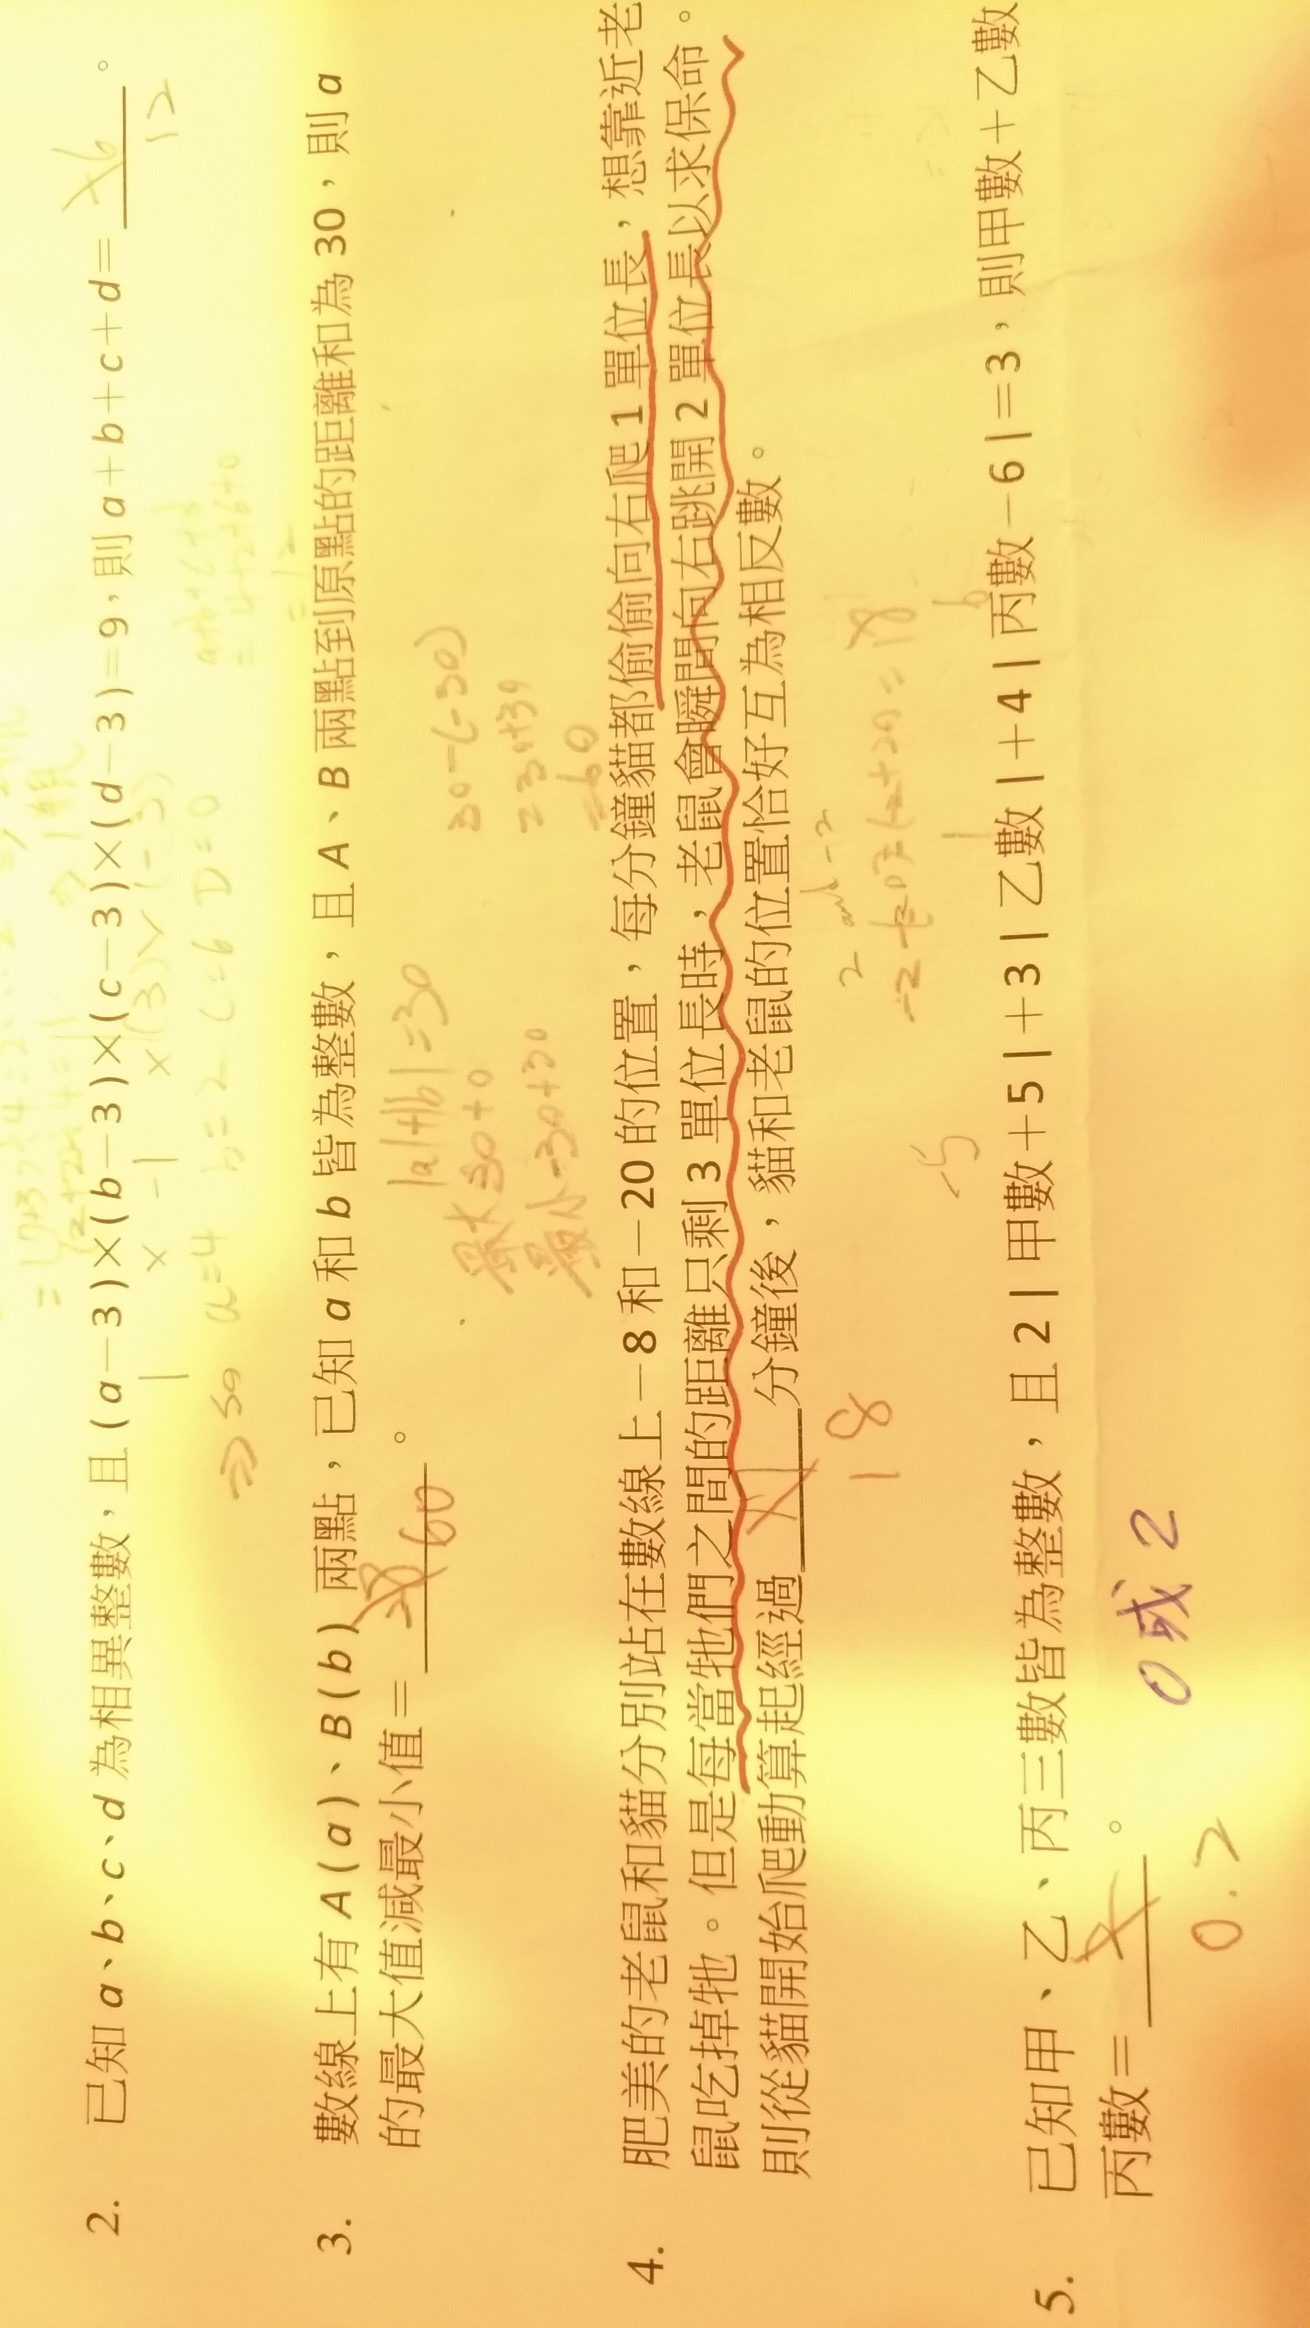 2. 已知 a、b、c、d 為相異整數，且 (a－3)×(b－3)×(c－3)×(d－3)＝9，則 a＋b＋c＋d＝
12
。
1 × -1 × (3) × (-3)
⇒ so a=4 b=2 c=6 D=0
a+b+c+d
= 4+2+6+0
= 12
3. 數線上有 A(a)、B(b) 兩點，已知 a 和 b 皆為整數，且 A、B 兩點到原點的距離和為 30，則 a
的最大值減最小值＝ 60 。
|a|+|b|=30
最大 30+0
最小 -30+
30-(-30)
=30+30
=60
4. 肥美的老鼠和貓分別站在數線上－8 和－20 的位置，每分鐘貓都偷偷向右爬 1 單位長，想靠近老
鼠吃掉牠。但是每當牠們之間的距離只剩 3 單位長時，老鼠會瞬間向右跳開 2 單位長以求保命。
則從貓開始爬動算起經過 分鐘後，貓和老鼠的位置恰好互為相反數。
18
2 and -2
5. 已知甲、乙、丙三數皆為整數，且 2｜甲數＋5｜＋3｜乙數｜＋4｜丙數－6｜＝3，則甲數＋乙數
丙數＝ 。
-5
1
6
0.2
0或2